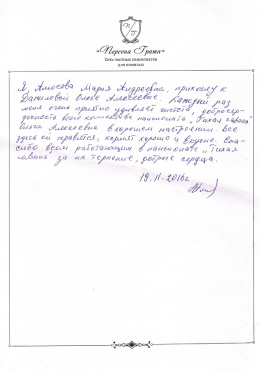 «Первая Грани»
Сеть частных пансионатов
для пожилых
Я, Амосова Мария Андреевна, прихожу к
Даниловой Ольге Алексеевне. Каждый раз
меня очень приятно удивляет чистота, добросер-
дечность всего коллектива пансионата „Тихая гавань"
Ольга Алексеевна в хорошем настроении. Все
здесь ей нравится, кормят хорошо и вкусно. Спа-
сибо всем работающим в пансионате „Тихая
гавань" за их терпение, добрые сердца.
19.11-2016г